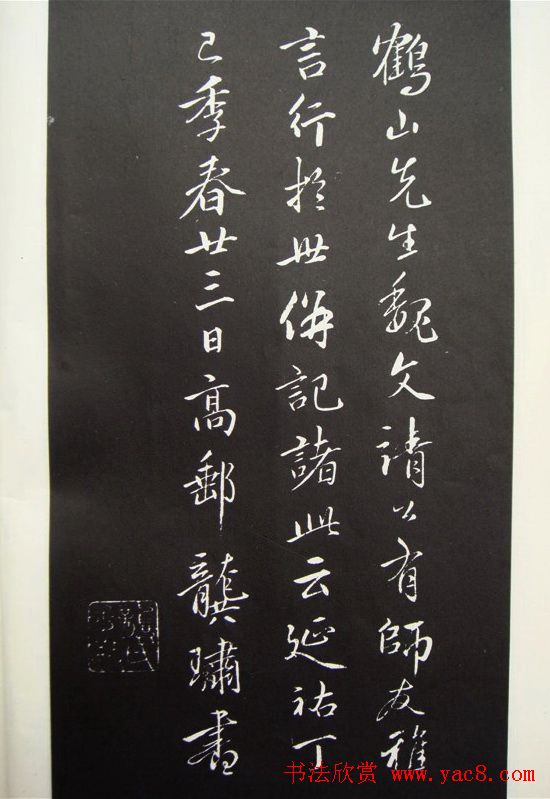 鶴山先生魏文靖公有師友雅
言行於世併記諸此云延祐丁
巳季春廿三日高郵龔璛書
书法欣赏 www.yac8.com